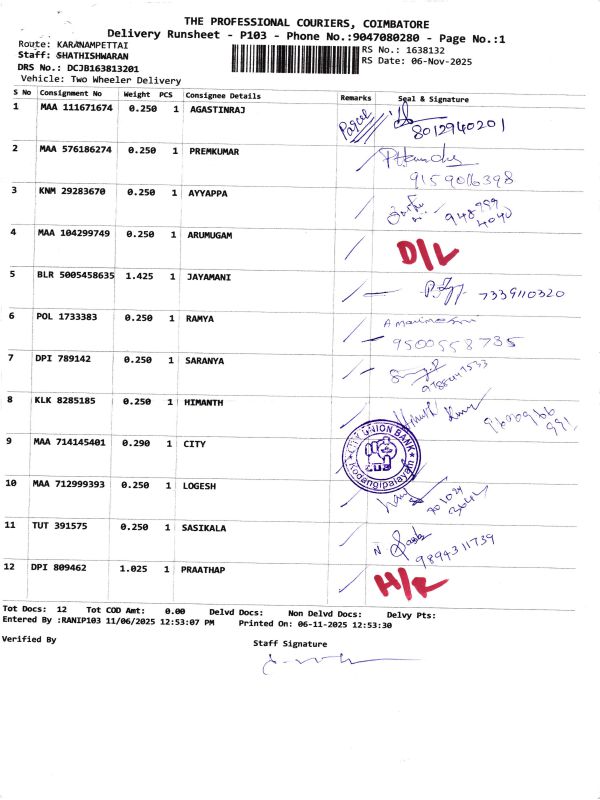 THE PROFESSIONAL COURIERS, COIMBATORE
Delivery Runsheet - P103 - Phone No.:9047080280 - Page No.:1
Route: KARANAMPETTAI RS No.: 1638132
Staff: SHATHISHWARAN RS Date: 06-Nov-2025
DRS No.: DCJB163813201
Vehicle: Two Wheeler Delivery
S No Consignment No Weight PCS Consignee Details Remarks Seal & Signature
1 MAA 111671674 0.250 1 AGASTINRAJ Parcel 8012940201
2 MAA 576186274 0.250 1 PREMKUMAR
9159016398
3 KNM 29283670 0.250 1 AYYAPPA
4 MAA 104299749 0.250 1 ARUMUGAM D/L
5 BLR 5005458635 1.425 1 JAYAMANI 7339110320
6 POL 1733383 0.250 1 RAMYA
9500558735
7 DPI 789142 0.250 1 SARANYA
8 KLK 8285185 0.250 1 HIMANTH
9 MAA 714145401 0.290 1 CITY CITY UNION BANK Kodangipalayam
10 MAA 712999393 0.250 1 LOGESH
11 TUT 391575 0.250 1 SASIKALA 9894311739
12 DPI 809462 1.025 1 PRAATHAP H/R
Tot Docs: 12 Tot COD Amt: 0.00 Delvd Docs: Non Delvd Docs: Delvy Pts:
Entered By :RANIP103 11/06/2025 12:53:07 PM Printed On: 06-11-2025 12:53:30
Verified By Staff Signature